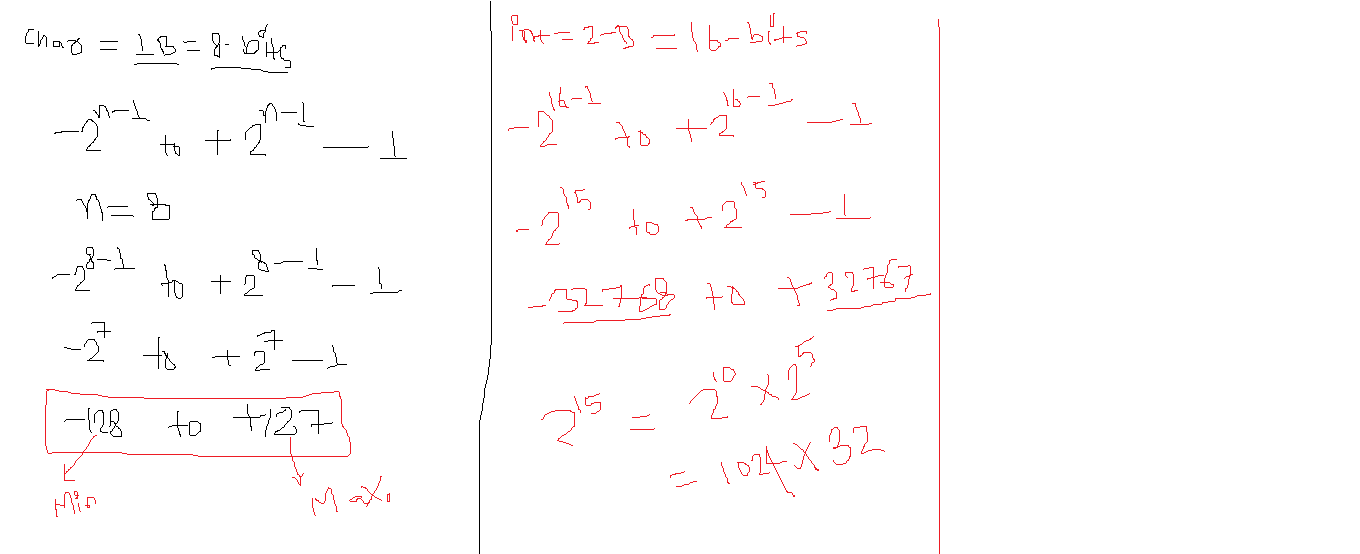 char = 1B = 8-bits
-2^{n-1} to +2^{n-1} - 1
n = 8
-2^{8-1} to +2^{8-1} - 1
-2^7 to +2^7 - 1
-128 to +127
Min Max.
int = 2-B = 16-bits
-2^{16-1} to +2^{16-1} - 1
-2^{15} to +2^{15} - 1
-32768 to +32767
2^{15} = 2^{10} × 2^5
= 1024 × 32